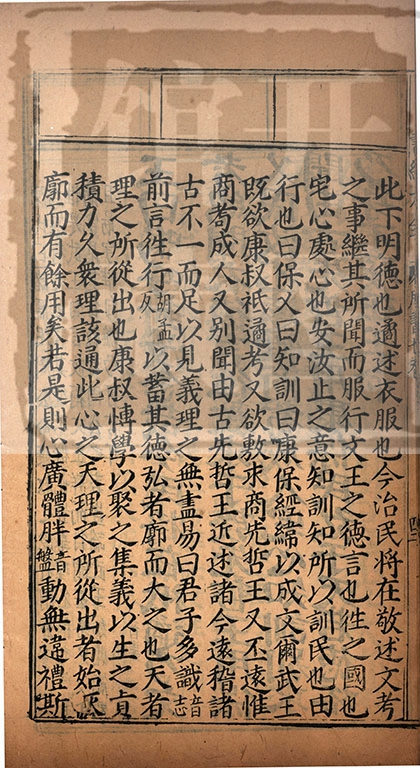 此下明德也遹述衣服也今治民將在敬述文考
之事繼其所聞而服行文王之德言也徃之國也
宅心處心也安汝止之意知訓知所以訓民也由
行也曰保乂曰知訓曰康保經緯以成文爾武王
既欲康叔祗遹考又欲敷求商先哲王又丕遠惟
商耇成人又別聞由古先哲王近述諸今遠稽諸
古不一而足以見義理之無盡易曰君子多識音志
前言徃行胡孟反以畜其德弘者廓而大之也天者
理之所從出也康叔博學以聚之集義以生之真
積力久衆理該通此心之天理之所從出者始恢
廓而有餘用矣若是則心廣體胖音盤動無違禮斯